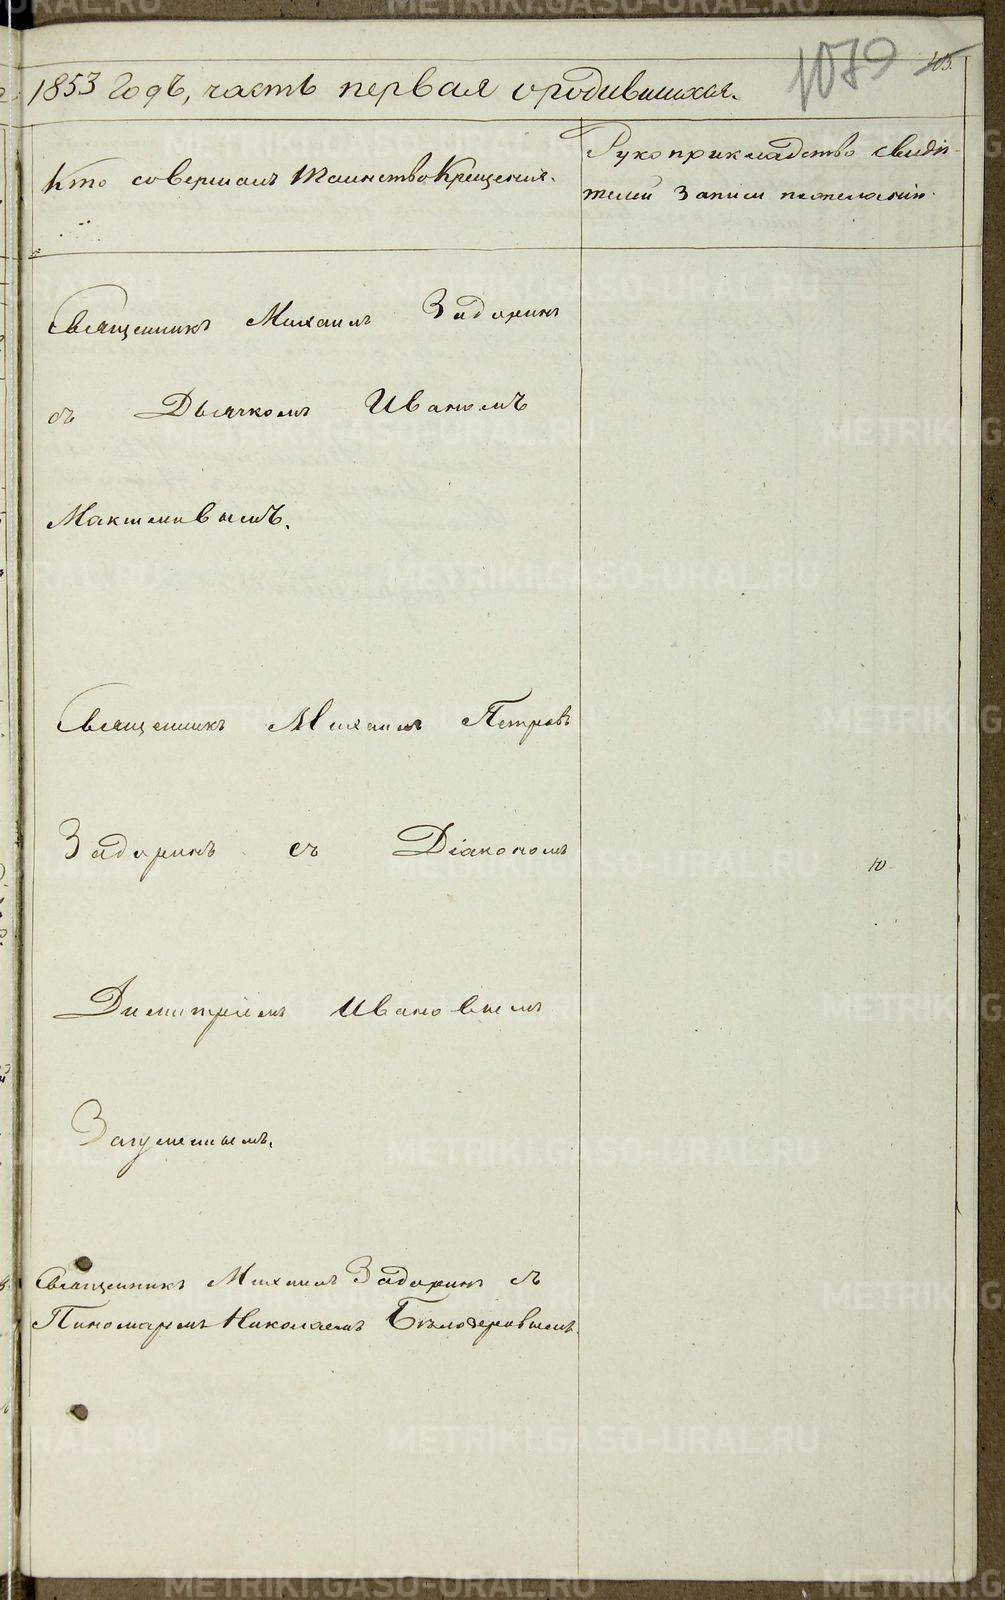 1079
105.
1853 Годъ, часть первая о родившихся.
Кто совершалъ таинство Крещения.
Рукоприкладство свидѣ-
телей записи по желанію.
Священникъ Михаилъ Задоринъ
съ Дьячкомъ Иваномъ
Максимовымъ.
Священникъ Михаилъ Петровъ
Задоринъ съ Діакономъ
Димитріемъ Ивановымъ
Загуменнымъ.
Священникъ Михаилъ Задоринъ съ
Пономаремъ Николаемъ Бѣлозеровымъ.
METRIKI.GASO-URAL.RU